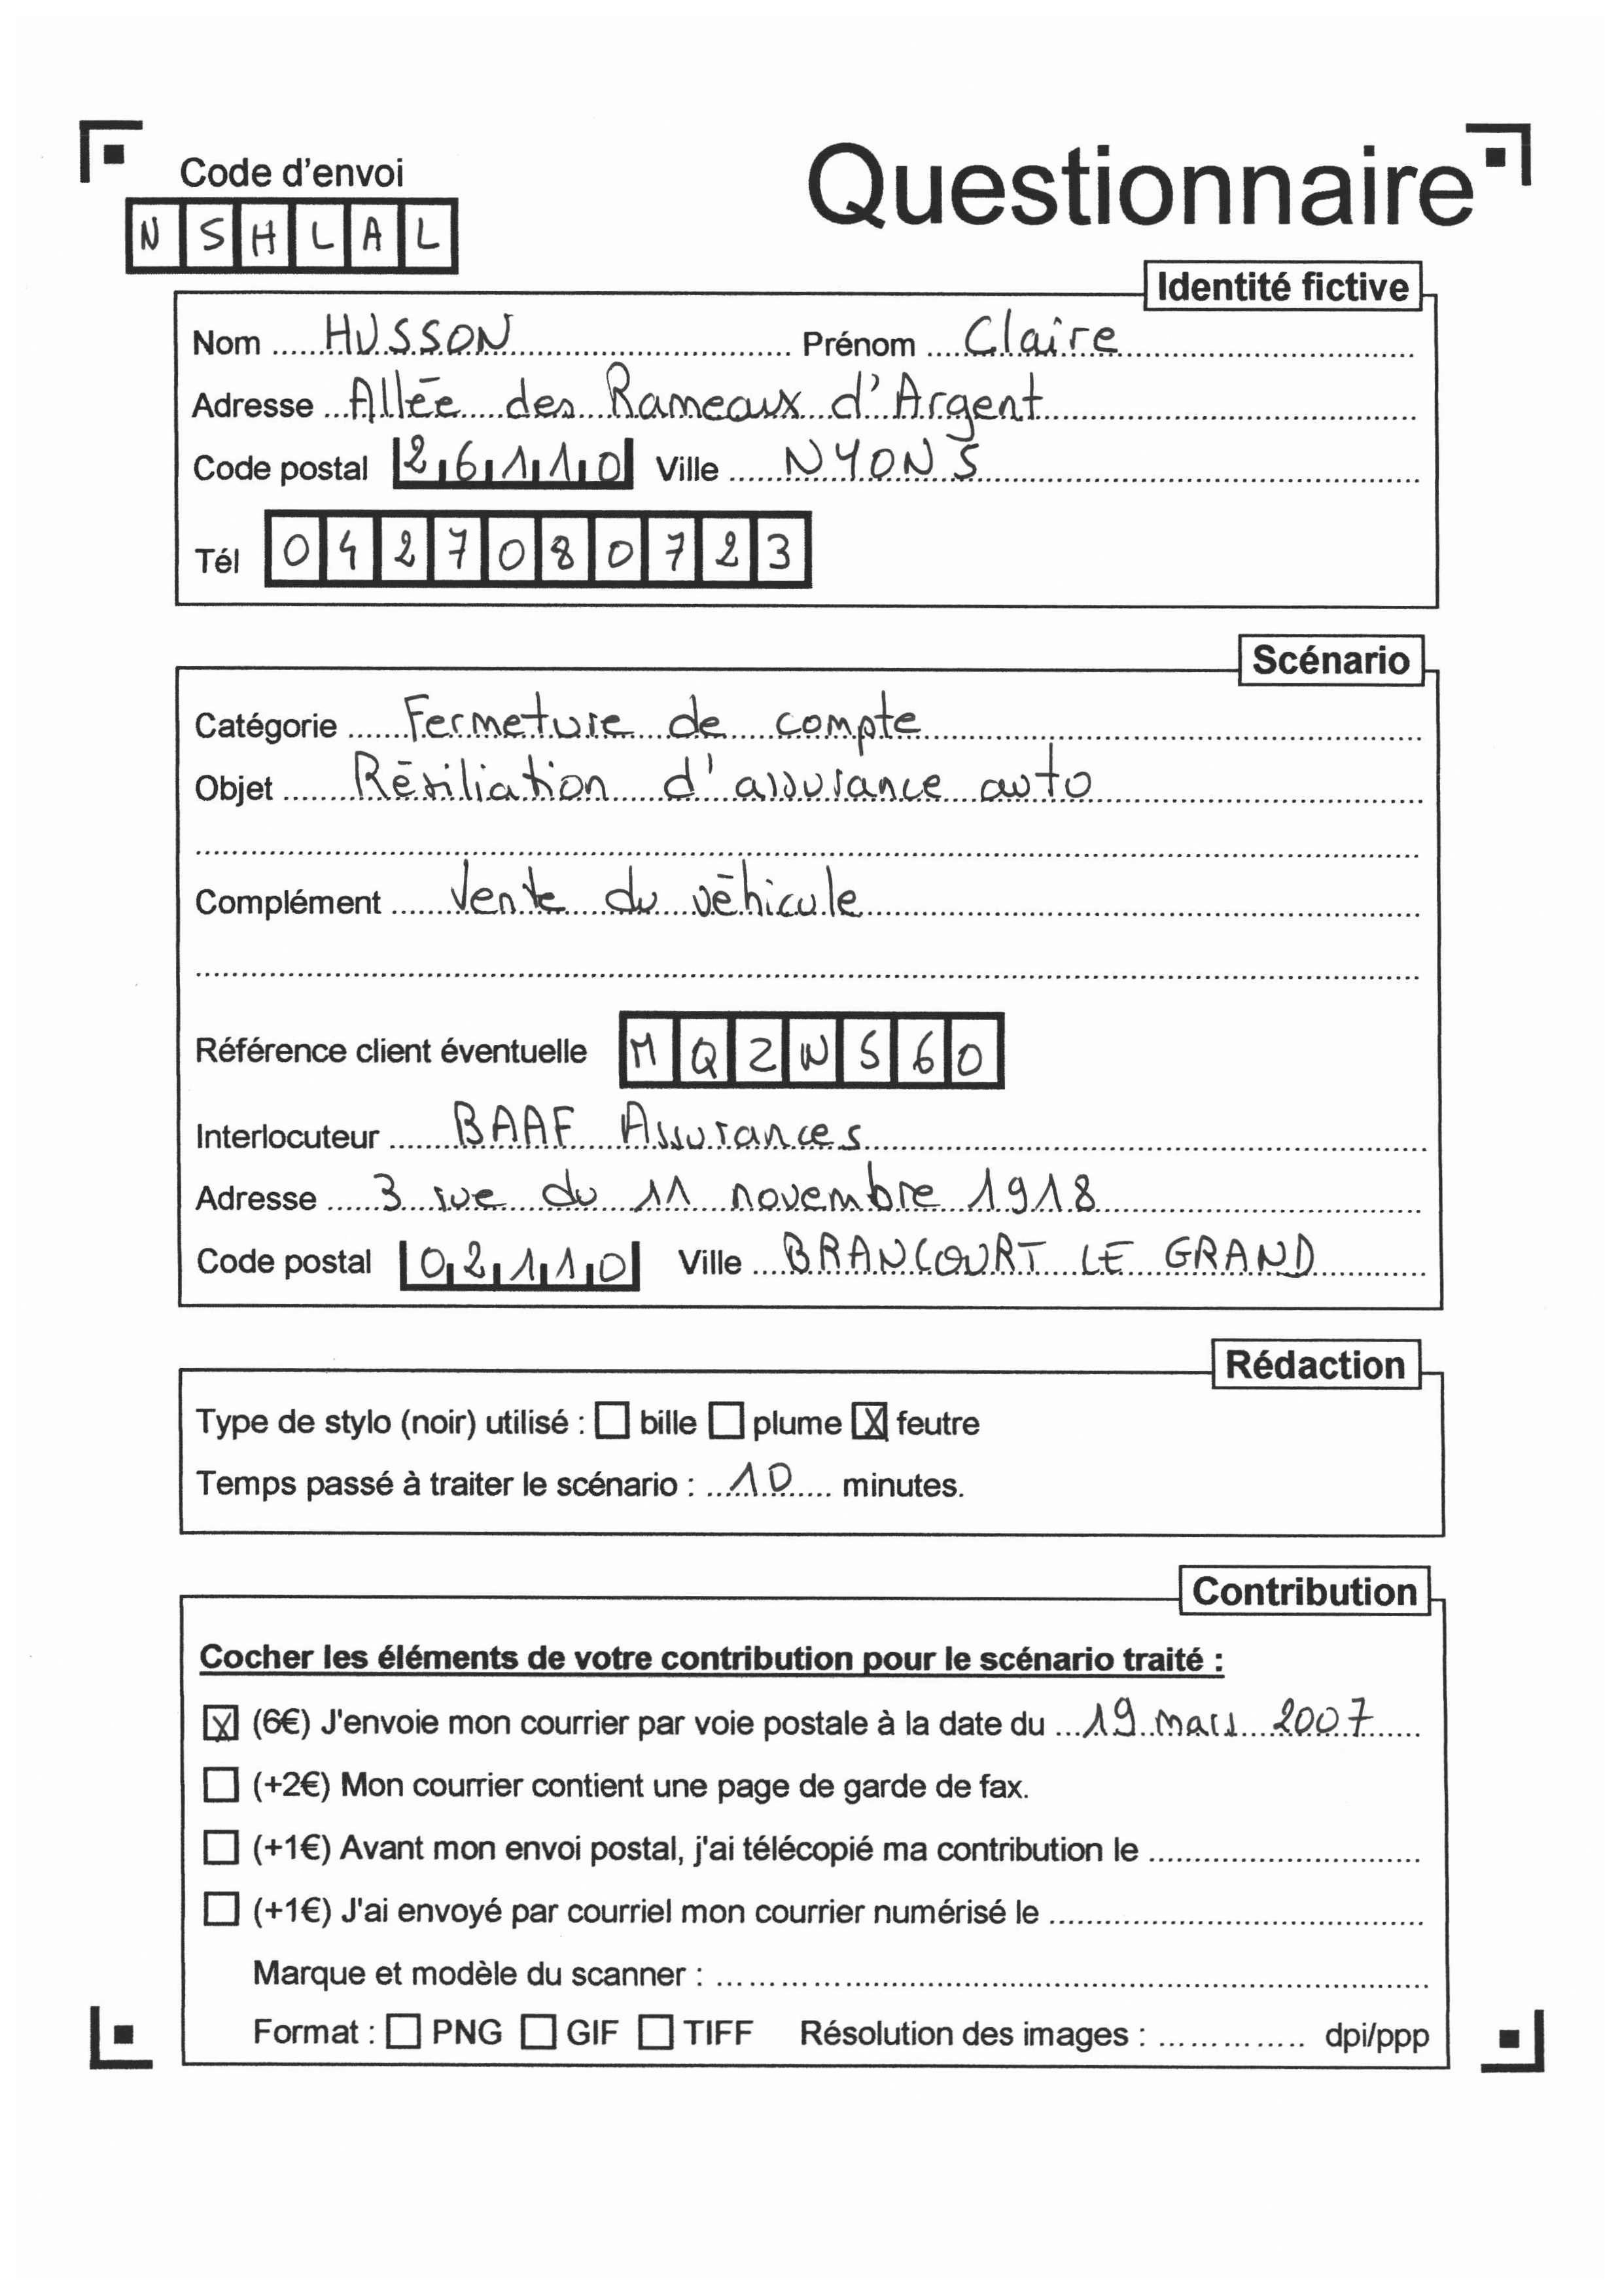 Code d'envoi
Questionnaire
NSHLAL
Identité fictive
Nom HUSSON Prénom Claire
Adresse Allée des Rameaux d'Argent
Code postal 26110 Ville NYONS
Tél 0427080723
Scénario
Catégorie Fermeture de compte
Objet Résiliation d'assurance auto
Complément Vente du véhicule
Référence client éventuelle MQZWS60
Interlocuteur BAAF Assurances
Adresse 3 rue du 11 novembre 1918
Code postal 02110 Ville BRANCOURT LE GRAND
Rédaction
Type de stylo (noir) utilisé : ☐ bille ☐ plume ☒ feutre
Temps passé à traiter le scénario : 10 minutes.
Contribution
Cocher les éléments de votre contribution pour le scénario traité :
☒ (6€) J'envoie mon courrier par voie postale à la date du 19 mars 2007
☐ (+2€) Mon courrier contient une page de garde de fax.
☐ (+1€) Avant mon envoi postal, j'ai télécopié ma contribution le
☐ (+1€) J'ai envoyé par courriel mon courrier numérisé le
Marque et modèle du scanner :
Format : ☐ PNG ☐ GIF ☐ TIFF Résolution des images : dpi/ppp